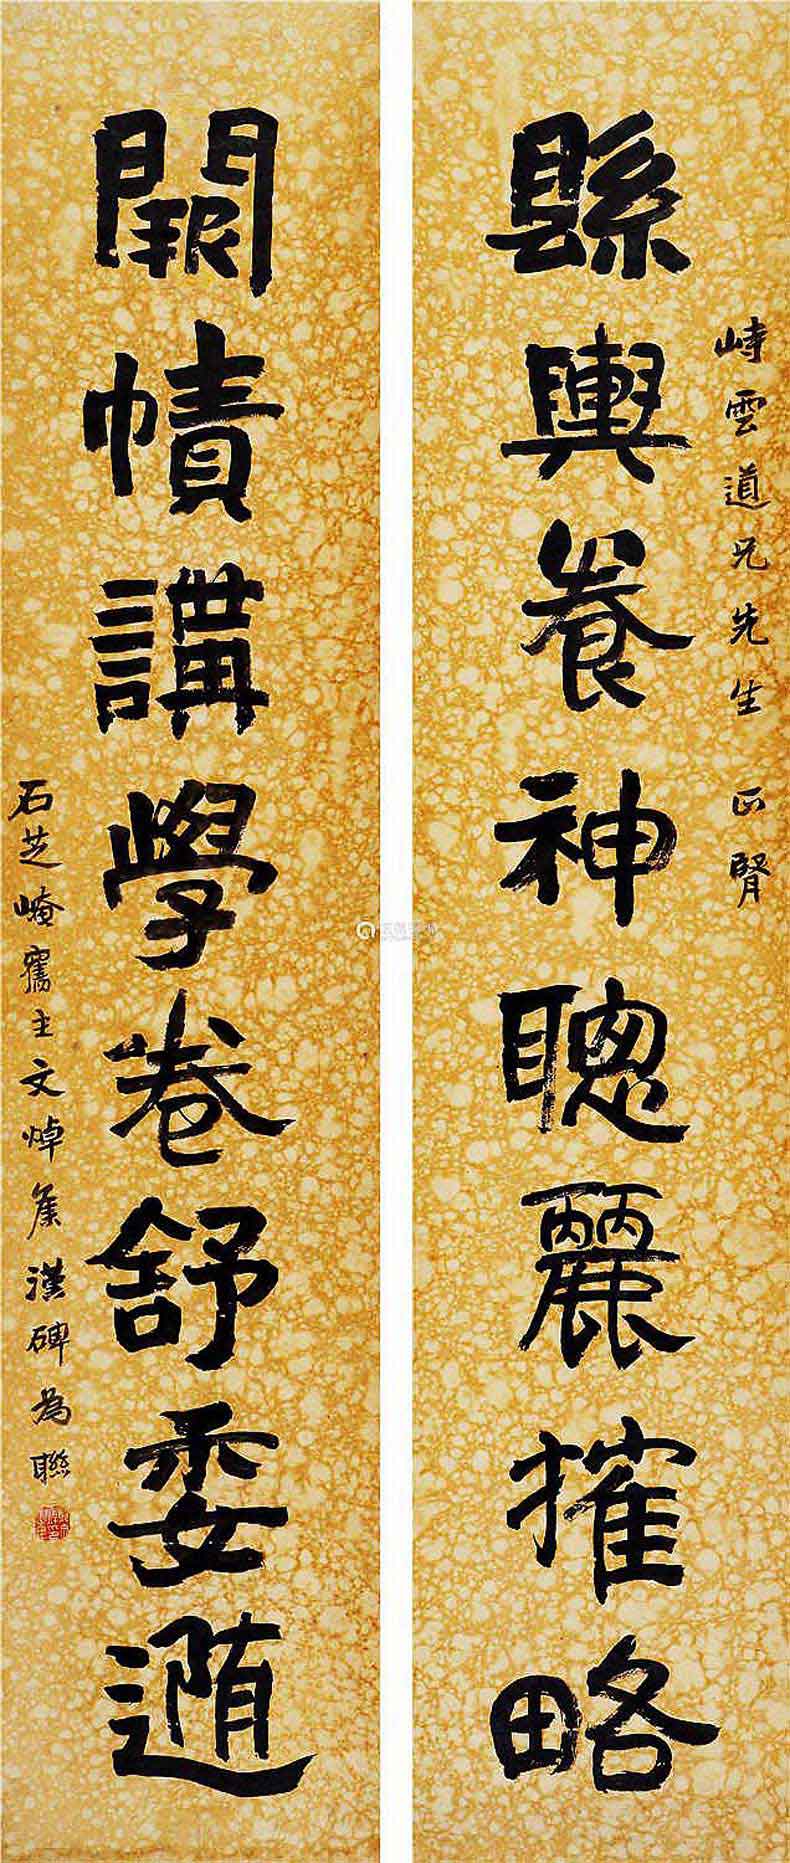 峙雲道兄先生 正腎
縣輿養神聰麗摧略
闕幘講學卷舒委遁
石芝崦𥨊主文焯集漢碑為聯